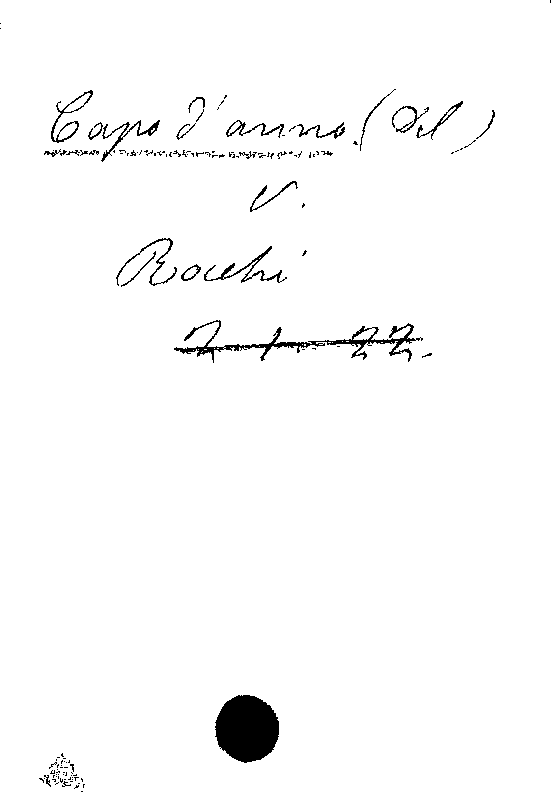 Capo d'anno. (Del)
v.
Rocchi
2 1. 22.